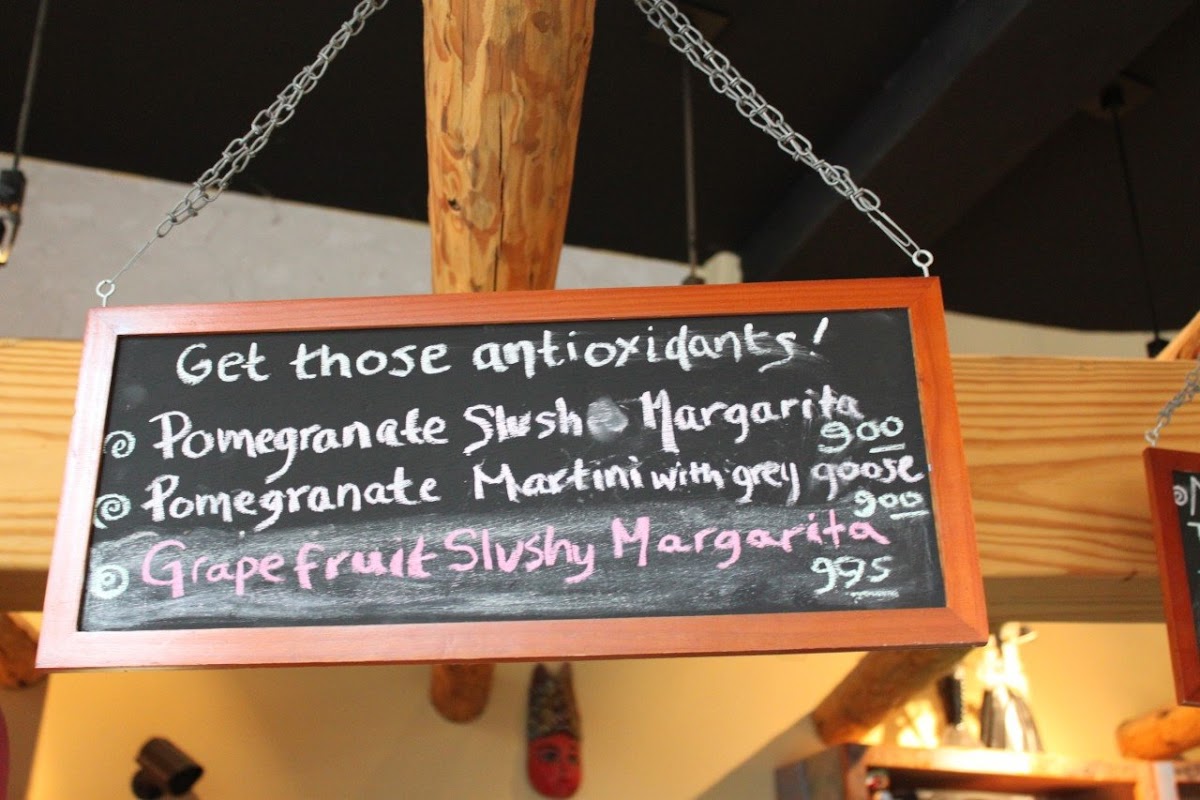 Get those antioxidants!
Pomegranate Slush Margarita
900
Pomegranate Martini with grey goose
900
Grapefruit Slushy Margarita
995